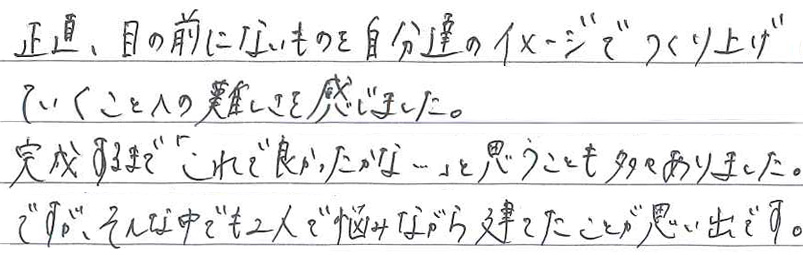 正直、目の前にないものを自分達のイメージでつくり上げ
ていくことへの難しさを感じました。
完成するまで「これで良かったかな…」と思うことも多々ありました。
ですが、そんな中でも2人で悩みながら建てたことが思い出です。